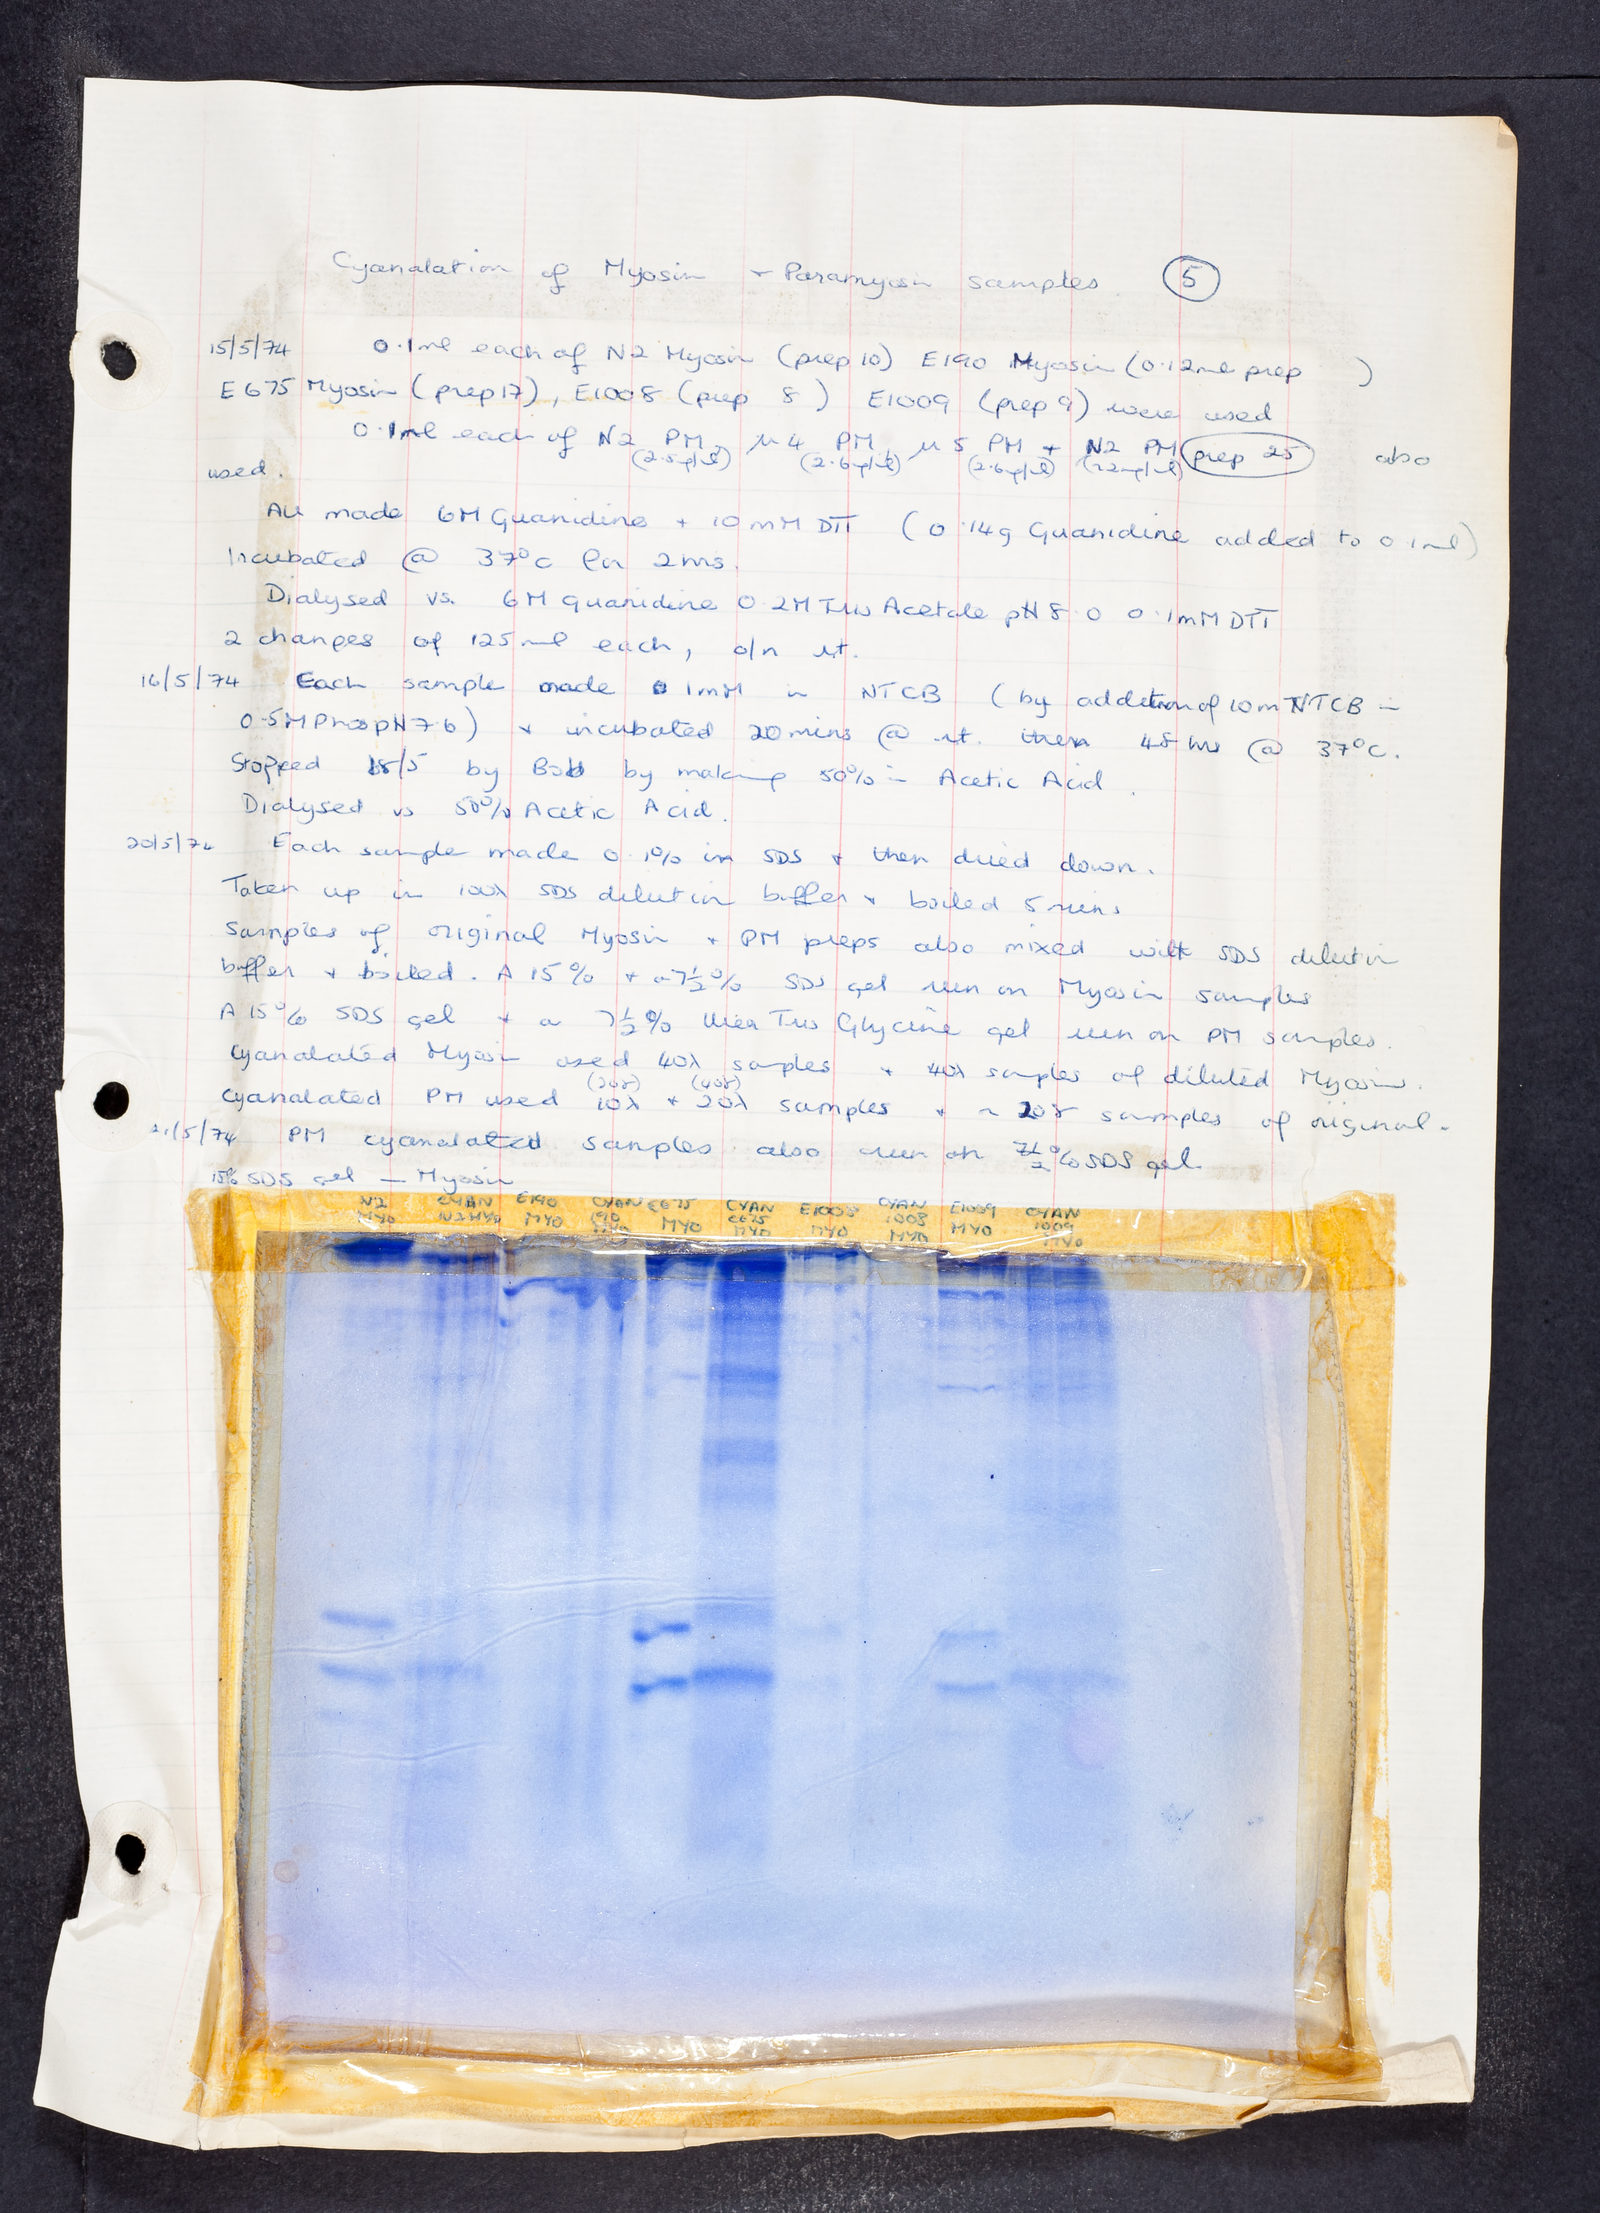 Cyanalation of Myosin + Paramyosin samples 5
15/5/74 0.1ml each of N2 Myosin (prep 10) E190 Myosin (0.12ml prep )
E675 Myosin (prep 17), E1008 (prep 8) E1009 (prep 9) were used
0.1ml each of N2 PM, µ4 PM, µ5 PM + N2 PM prep 25 also
(2.5mg/ml) (2.6mg/ml) (2.6mg/ml) (2.2mg/ml)
used.
All made 6M Guanidine + 10mM DTT (0.14g Guanidine added to 0.1ml)
Incubated @ 37°C for 2hrs.
Dialysed vs. 6M guanidine 0.2M Tris Acetate pH 8.0 0.1mM DTT
2 changes of 125ml each, o/n rt.
16/5/74 Each sample made 1mM in NTCB (by addition of 10mM NTCB in
0.5M Phos pH 7.6) + incubated 20mins @ rt. then 48 hrs @ 37°C.
Stopped 18/5 by Bob by making 50% in Acetic Acid.
Dialysed vs 50% Acetic Acid.
20/5/74 Each sample made 0.1% in SDS + then dried down.
Taken up in 100λ SDS dilution buffer + boiled 5 mins
Samples of original Myosin + PM preps also mixed with SDS dilution
buffer + boiled. A 15% + a 7½% SDS gel run on Myosin samples
A 15% SDS gel + a 7½% Urea Tris Glycine gel run on PM samples.
Cyanalated Myosin used 40λ samples + 40λ samples of diluted Myosins.
(20γ) (40γ)
Cyanalated PM used 10λ + 20λ samples + ~ 20γ samples of original.
21/5/74 PM cyanalated samples also run on 7½% SDS gel.
15% SDS gel — Myosin
N2 MYO CYAN N2 MYO E190 MYO CYAN 190 MYO E675 MYO CYAN E675 MYO E1008 MYO CYAN 1008 MYO E1009 MYO CYAN 1009 MYO